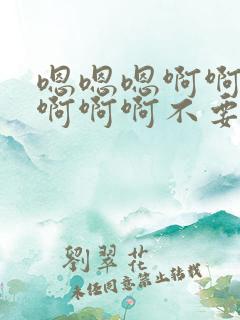 嗯嗯嗯啊啊
啊啊啊不要
劉翠花
未经同意禁止转载